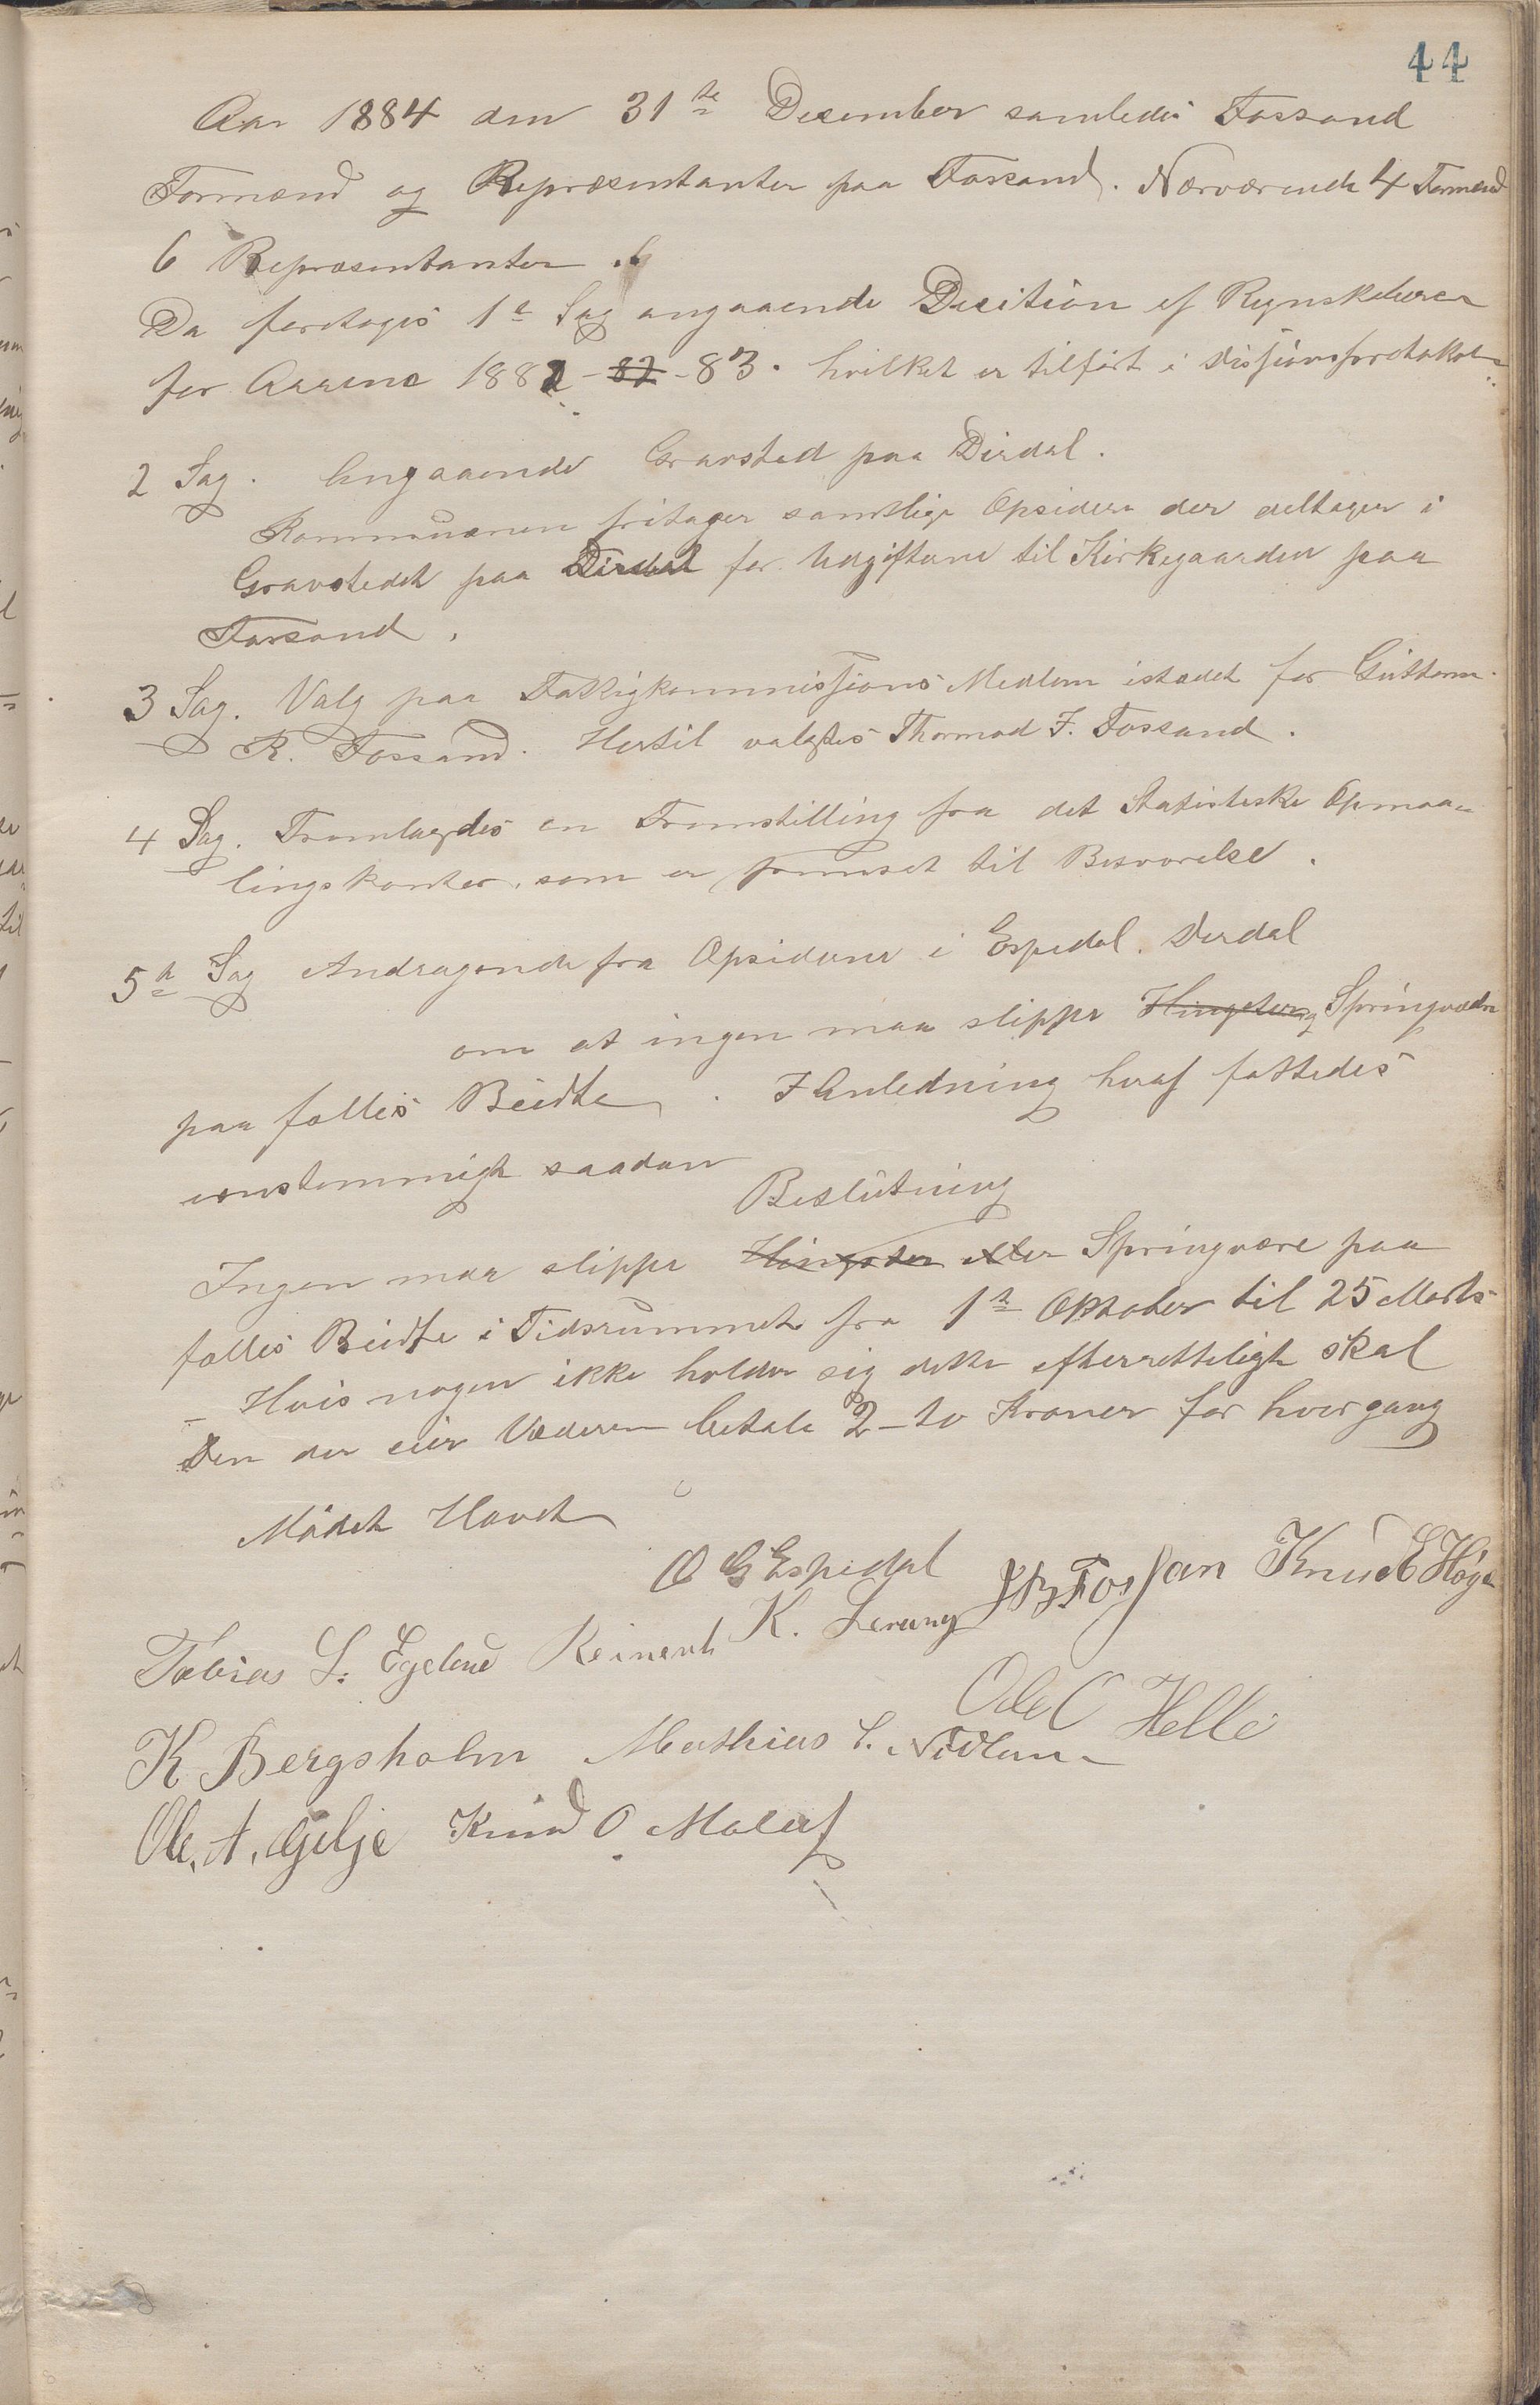 44
Aar 1884 den 31te December samledes Fossand
Formænd og Repræsentanter paa Fossand. Nærværende 4 Formænd
6 Repræsentanter.
Da foretoges 1te Sag angaaende Decition af Regnskaberne
for Aarene 1882 - 82 - 83. hvilket er tilført i Disjionsprotokolen
2 Sag. Angaaende Gravsted paa Dirdal.
Kommunen fritager samtlige Opsidere der deltager i
Gravstedet paa Dirdal for Udgifterne til Kirkegaarden paa
Forsand.
3 Sag. Valg paa Fattigkommissions Medlem istedet for Guttorm
R. Fossand. Hertil valgtes Thormod J. Fossand.
4 Sag. Fremlagdes en Fremstilling fra det Statisteske Opmaa-
lingskontor, som er til Besvarelse.
5te Sag Andragende fra Opsiderne i Espedal. Dirdal
om at ingen maa slippe Hingster og Springvædre
paa fælles Beidte. I Anledning heraf fattedes
eenstemmigt saadan
Beslutning
Ingen maa slippe Hingster eller Springvære paa
fælles Beidte i Tidsrummet fra 1te Oktober til 25 Marts
- Hvis nogen ikke holder sig dette efterretteligt skal
Den der eier Væderen betale 2 - to Kroner for hver gang
Mødet Hævet
O G Espedal
Tobias L. Egelund Reinert K. Lerang Fossan Knud E Høge
Ole C Helle
K Bergsholm Mathias S. Nidlun
Ole. A. Gilje Knud O Molaug